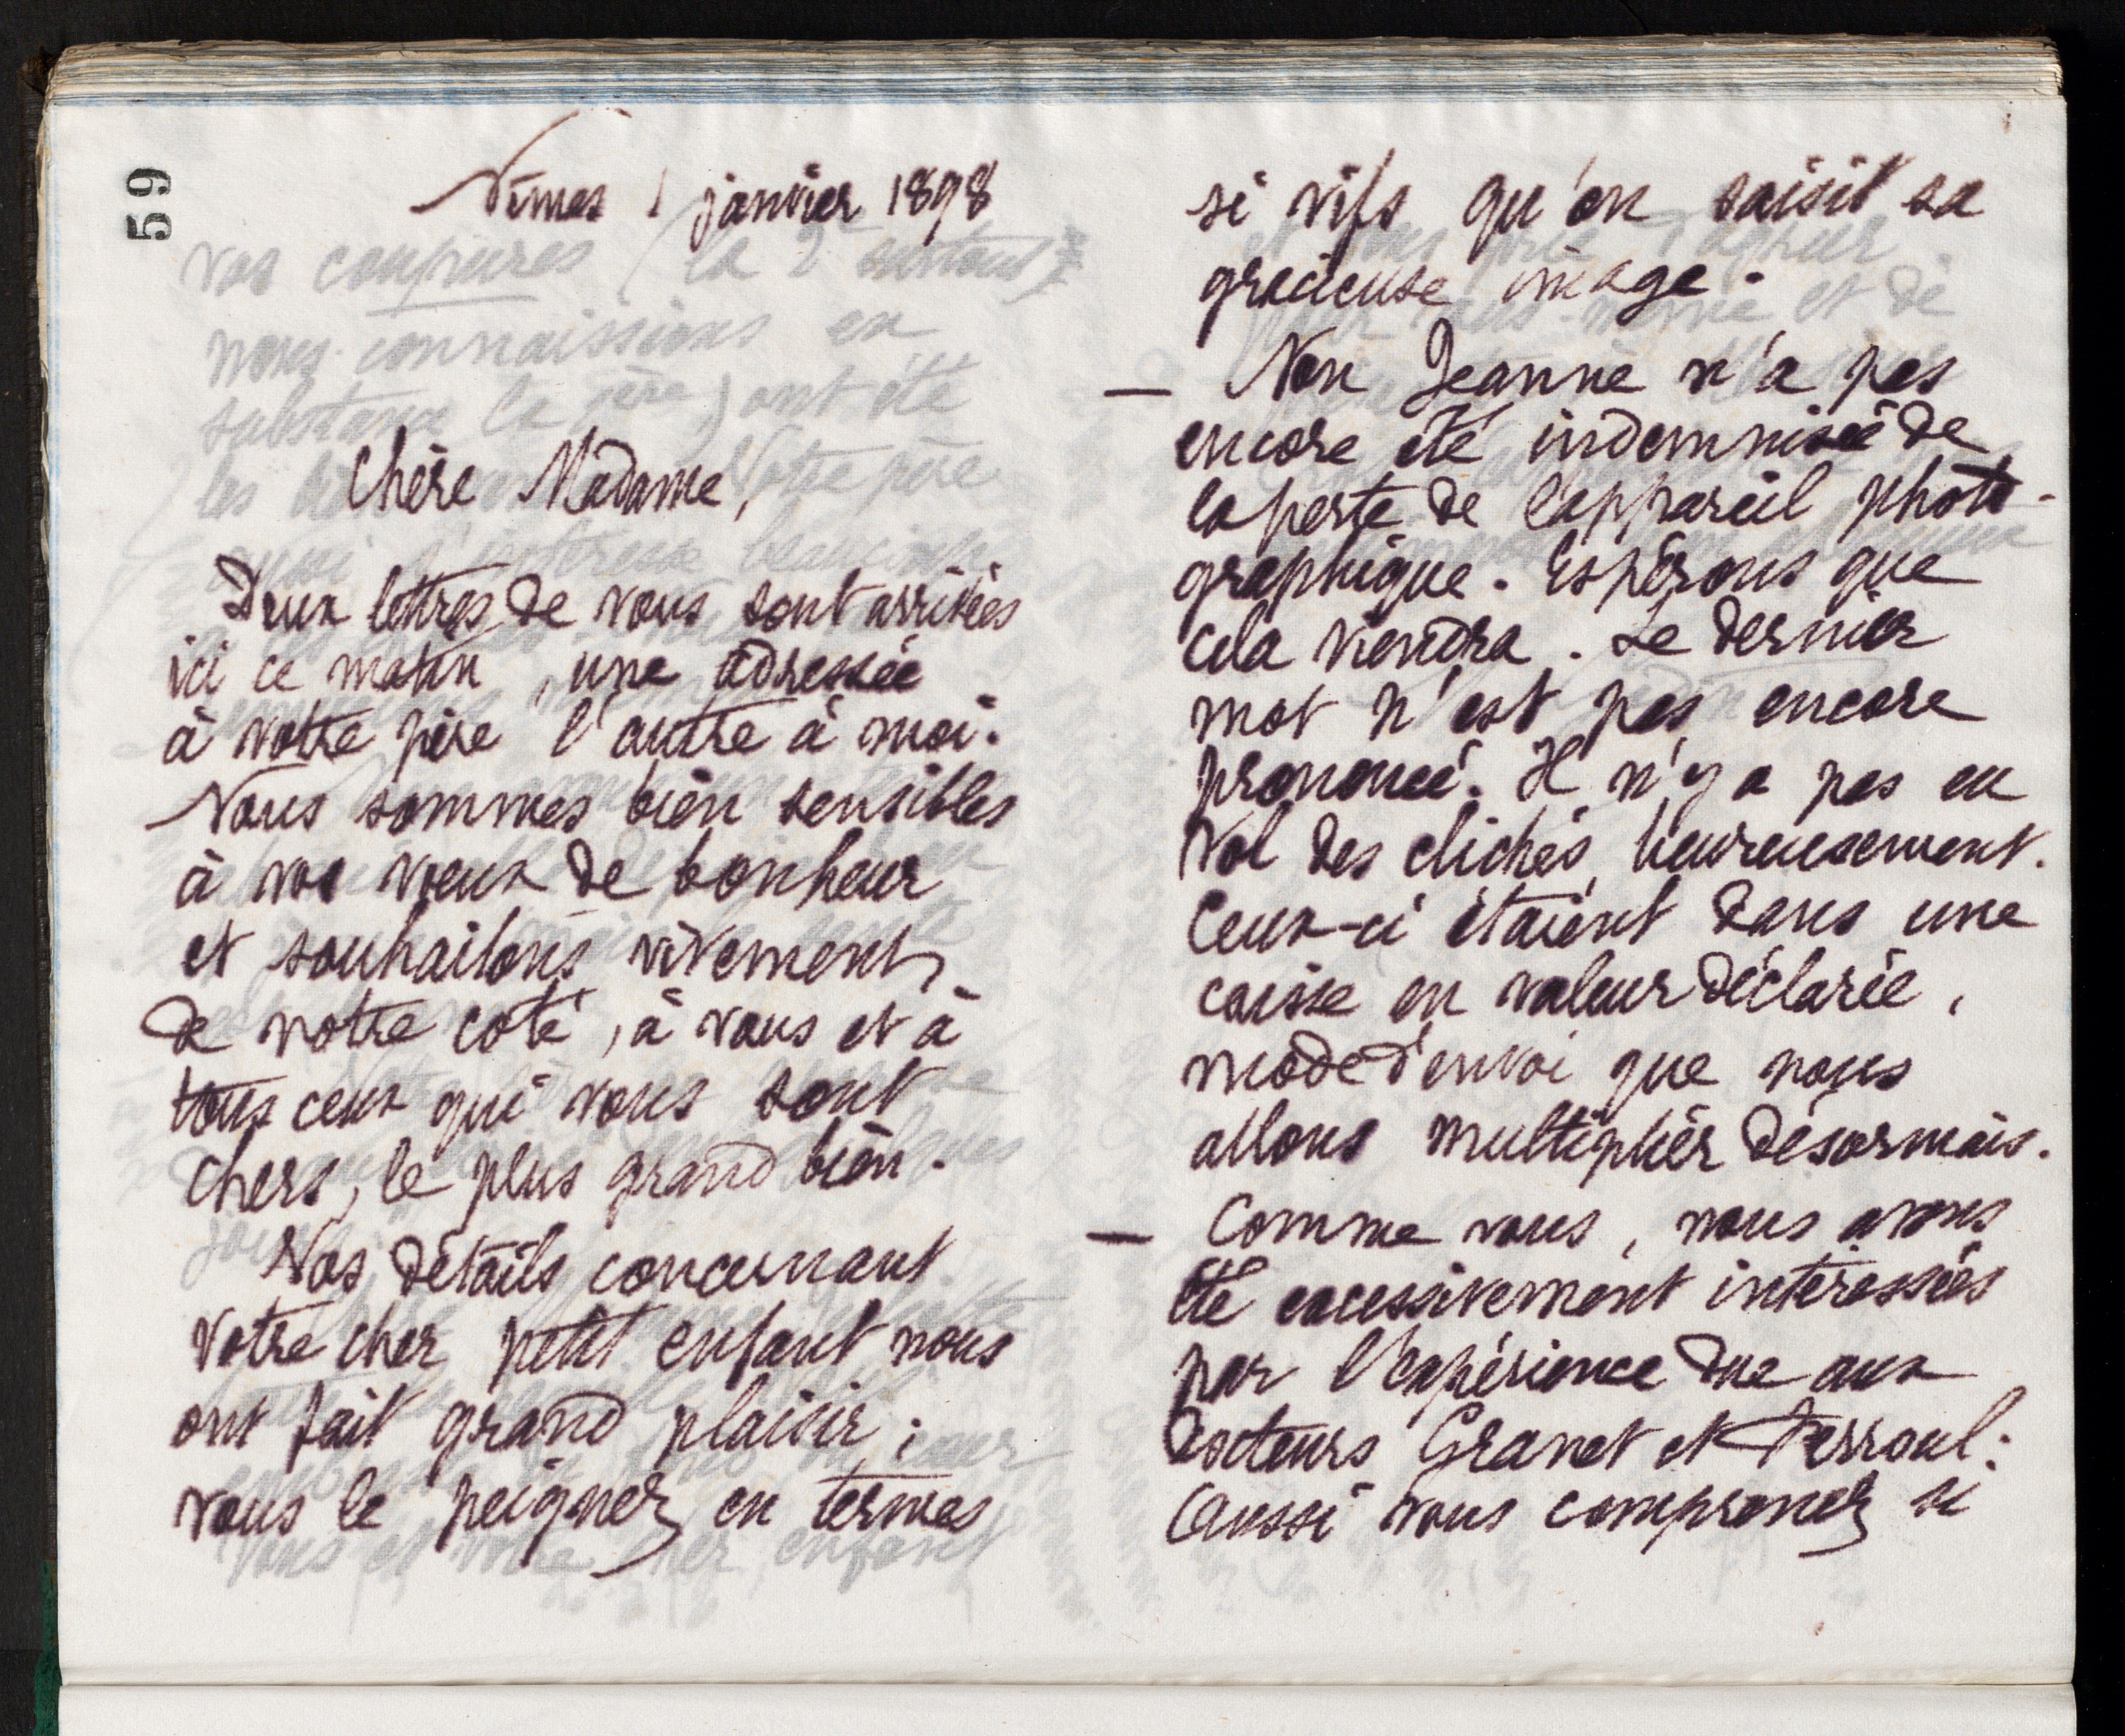 59
Nîmes 1 janvier 1898
Chère Madame,
Deux lettres de vous sont arrivées
ici ce matin, une adressée
à votre père l'autre à moi.
Nous sommes bien sensibles
à vos vœux de bonheur
et souhaitons vivement,
de notre coté, à vous et à
tous ceux qui vous sont
chers, le plus grand bien.
Vos détails concernant
votre cher petit enfant nous
ont fait grand plaisir;
vous le peignez en termes
si vifs qu'on saisit sa
gracieuse image.
— Non Jeanne n'a pas
encore été indemnisée de
la perte de l'appareil photo-
graphique. Espérons que
cela viendra. Le dernier
mot n'est pas encore
prononcé. Il n'y a pas eu
vol des clichés, heureusement.
Ceux-ci étaient dans une
caisse en valeur déclarée,
mode d'envoi que nous
allons multiplier désormais.
— Comme vous, nous avons
été excessivement intéressées
par l'expérience due aux
docteurs Granet et Perroul:
Aussi vous comprenez si